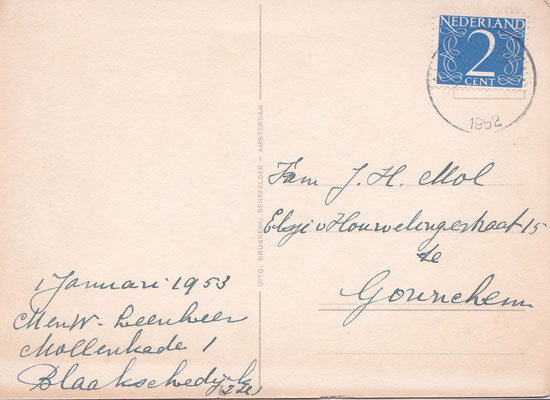 NEDERLAND
2
CENT
1952
Fam J. H. Mol
Elsje v Houwelingestraat 15
te
Gorinchem
1 Januari 1953
M en W. Leenheer
Mollenkade 1
Blaakschedijk
UITG. DRUKKERIJ SENEFELDER - AMSTERDAM